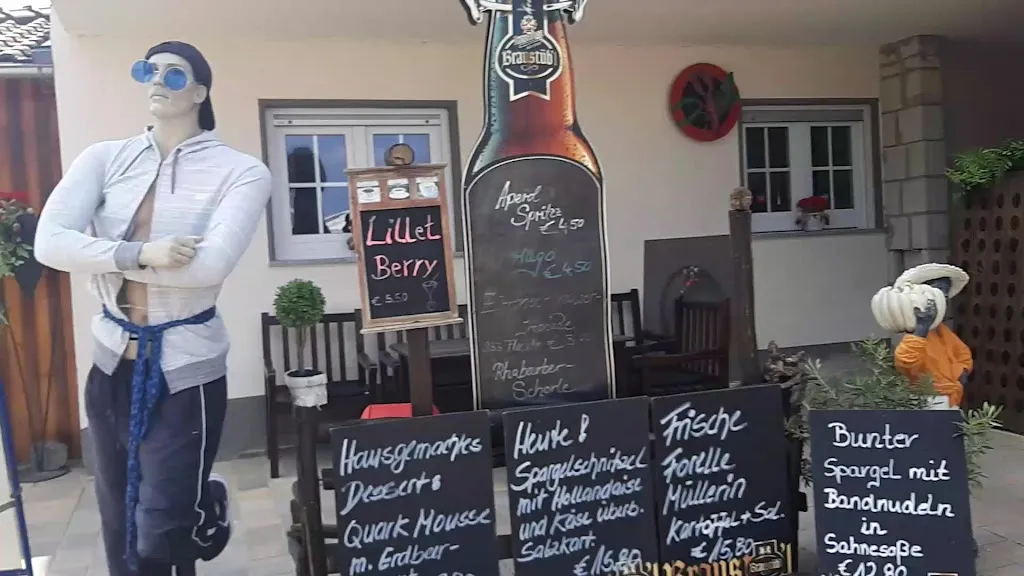 Braustüb
Lillet
Berry
€ 5.50
Aperol
Spritz
€ 4,50
Hugo
€ 4.50
Rhabarber-
Schorle
Hausgemachtes
Dessert:
Quark Mousse
m. Erdbeer-
Heute!
Spargelschnitzel
mit Hollandaise
und Käse überb.
Salzkart.
€15,80
Frische
Forelle
Müllerin
Kartoffel + Sal.
€15,80
Bunter
Spargel mit
Bandnudeln
in
Sahnesoße
€12,80